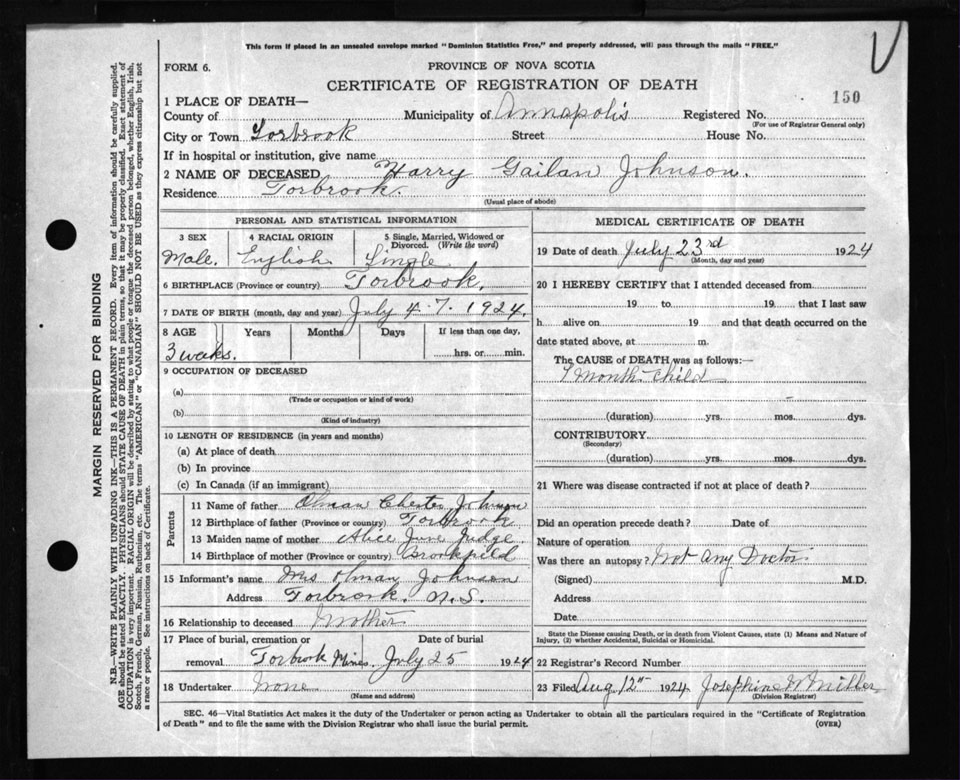 This form if placed in an unsealed envelope marked "Dominion Statistics Free," and properly addressed, will pass through the mails "FREE."
FORM 6.
PROVINCE OF NOVA SCOTIA
CERTIFICATE OF REGISTRATION OF DEATH
150
1 PLACE OF DEATH—
County of Municipality of Annapolis Registered No.
(For use of Registrar General only)
City or Town Torbrook Street House No.
If in hospital or institution, give name
2 NAME OF DECEASED Harry Gailan Johnson.
Residence Torbrook.
(Usual place of abode)
PERSONAL AND STATISTICAL INFORMATION
3 SEX 4 RACIAL ORIGIN 5 Single, Married, Widowed or Divorced. (Write the word)
Male. English Single
6 BIRTHPLACE (Province or country) Torbrook.
7 DATE OF BIRTH (month, day and year) July 4. 7. 1924.
8 AGE Years Months Days If less than one day,
3 weaks. hrs. or min.
9 OCCUPATION OF DECEASED
(a)
(Trade or occupation or kind of work)
(b)
(Kind of industry)
10 LENGTH OF RESIDENCE (in years and months)
(a) At place of death
(b) In province
(c) In Canada (if an immigrant)
Parents
11 Name of father Olman Chester Johnson
12 Birthplace of father (Province or country) Torbrook
13 Maiden name of mother Alice June Judge.
14 Birthplace of mother (Province or country) Brookfield
15 Informant's name Mrs Olman Johnson
Address Torbrook. N.S.
16 Relationship to deceased Mother
17 Place of burial, cremation or removal Date of burial
Torbrook Mines. July 25 1924
18 Undertaker None
(Name and address)
MEDICAL CERTIFICATE OF DEATH
19 Date of death July 23rd 1924
(Month, day and year)
20 I HEREBY CERTIFY that I attended deceased from
19 to 19 that I last saw
h alive on 19 and that death occurred on the
date stated above, at m.
The CAUSE of DEATH was as follows:—
7 month child
(duration) yrs. mos. dys.
CONTRIBUTORY
(Secondary)
(duration) yrs. mos. dys.
21 Where was disease contracted if not at place of death?
Did an operation precede death? Date of
Nature of operation
Was there an autopsy? Not Any Doctor
(Signed) M.D.
Address
Date
State the Disease causing Death, or in death from Violent Causes, state (1) Means and Nature of
Injury, (2) whether Accidental, Suicidal or Homicidal.
22 Registrar's Record Number
23 Filed Aug 12th 1924 Josephine W Miller
(Division Registrar)
SEC. 46—Vital Statistics Act makes it the duty of the Undertaker or person acting as Undertaker to obtain all the particulars required in the "Certificate of Registration
of Death" and to file the same with the Division Registrar who shall issue the burial permit. (OVER)
MARGIN RESERVED FOR BINDING
N.B.—WRITE PLAINLY WITH UNFADING INK—THIS IS A PERMANENT RECORD. Every item of information should be carefully supplied.
AGE should be stated EXACTLY. PHYSICIANS should STATE CAUSE OF DEATH in plain terms, so that it may be properly classified. Exact statement of
OCCUPATION is very important. RACIAL ORIGIN will be described by stating to what people or tongue the deceased person belonged, whether English, Irish,
Scotch, French, German, Russian, Ruthenian, etc. The terms "AMERICAN" or "CANADIAN" SHOULD NOT BE USED as they express citizenship but not
a race or people. See instructions on back of Certificate.